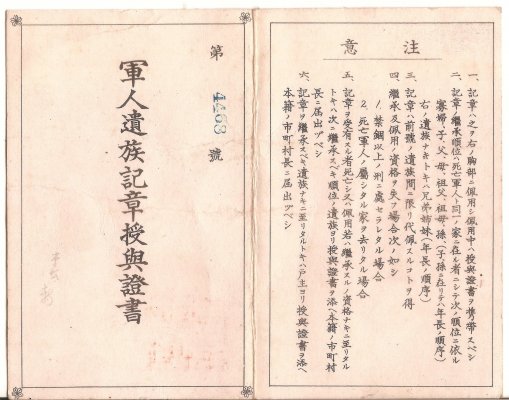 注意
一、記章ハ之ヲ右ノ胸部ニ佩用シ佩用中ハ授與證書ヲ携帶スベシ
二、記章ノ繼承順位ハ死亡軍人ト同一ノ家ニ在ル者ニシテ次ノ順位ニ依ル
寡婦、子、父、母、祖父、祖母、孫、(子孫ニ在リテハ年長ノ順序)
右ノ遺族ナキトキハ兄弟姉妹(年長ノ順序)
三、記章ハ前號ノ遺族間ニ限リ代佩スルコトヲ得
四、繼承及佩用ノ資格ヲ失フ場合次ノ如シ
1. 禁錮以上ノ刑ニ處セラレタル場合
2. 死亡軍人ノ屬シタル家ヲ去リタル場合
五、記章ヲ受有スル者死亡シ又ハ佩用若ハ繼承スルノ資格ナキニ至リタル
トキハ次ニ繼承スベキ順位ノ遺族ヨリ授與證書ヲ添ヘ本籍ノ市町村
長ニ屆出ヅベシ
六、記章ヲ繼承スベキ遺族ナキニ至リタルトキハ戸主ヨリ授與證書ヲ添ヘ
本籍ノ市町村長ニ屆出ヅベシ
第 4463 號
軍人遺族記章授與證書